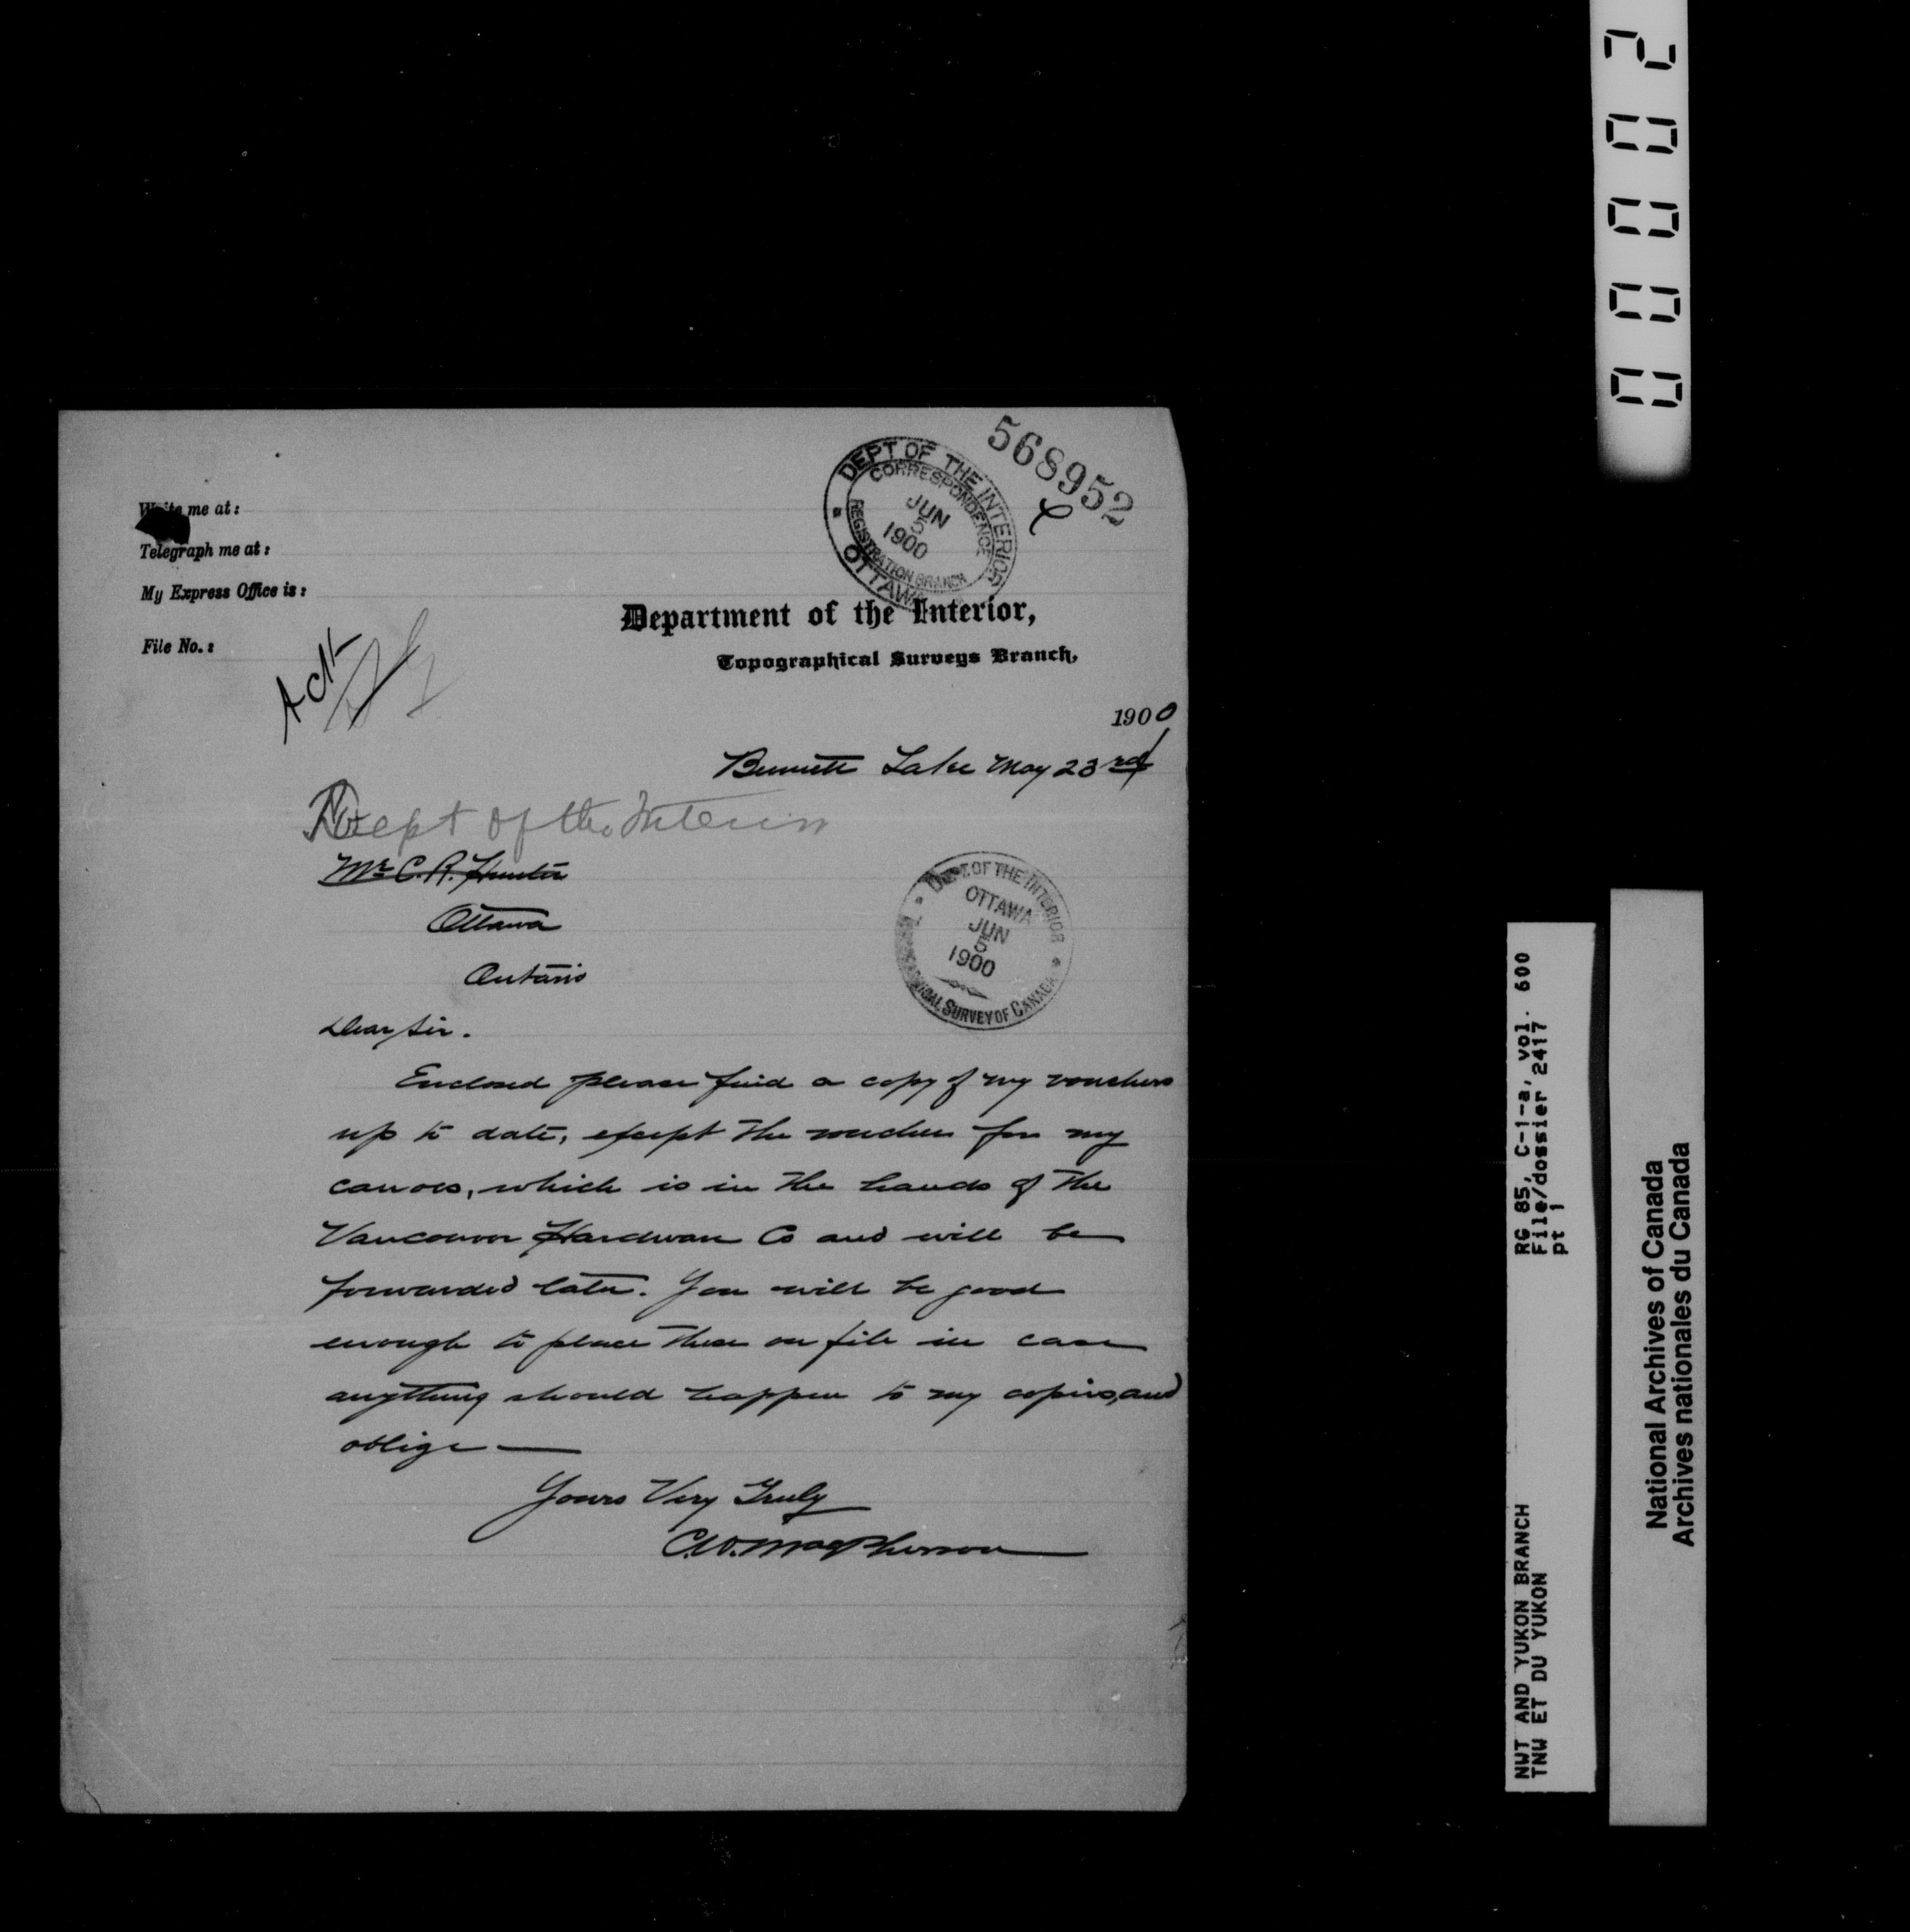 568952
DEPT OF THE INTERIOR
CORRESPONDENCE
JUN
5
1900
REGISTRATION BRANCH
OTTAWA
Write me at:
Telegraph me at:
My Express Office is:
File No.:
Ack
Department of the Interior,
Topographical Surveys Branch,
1900
Bennett Lake May 23rd
Dept of the Interior
Mr C. R. Hunter
Ottawa
Ontario
DEPT. OF THE INTERIOR
OTTAWA
JUN
5
1900
SURVEY OF CANADA
Dear Sir.
Enclosed please find a copy of my vouchers
up to date, except the voucher for my
canoes, which is in the hands of the
Vancouver Hardware Co and will be
forwarded later. You will be good
enough to place these on file in case
anything should happen to my copies, and
oblige
Yours Very Truly
C.W. MacPherson
00002
RG 85, C-1-a, vol. 600
File/dossier 2417
pt 1
NWT AND YUKON BRANCH
TNW ET DU YUKON
National Archives of Canada
Archives nationales du Canada